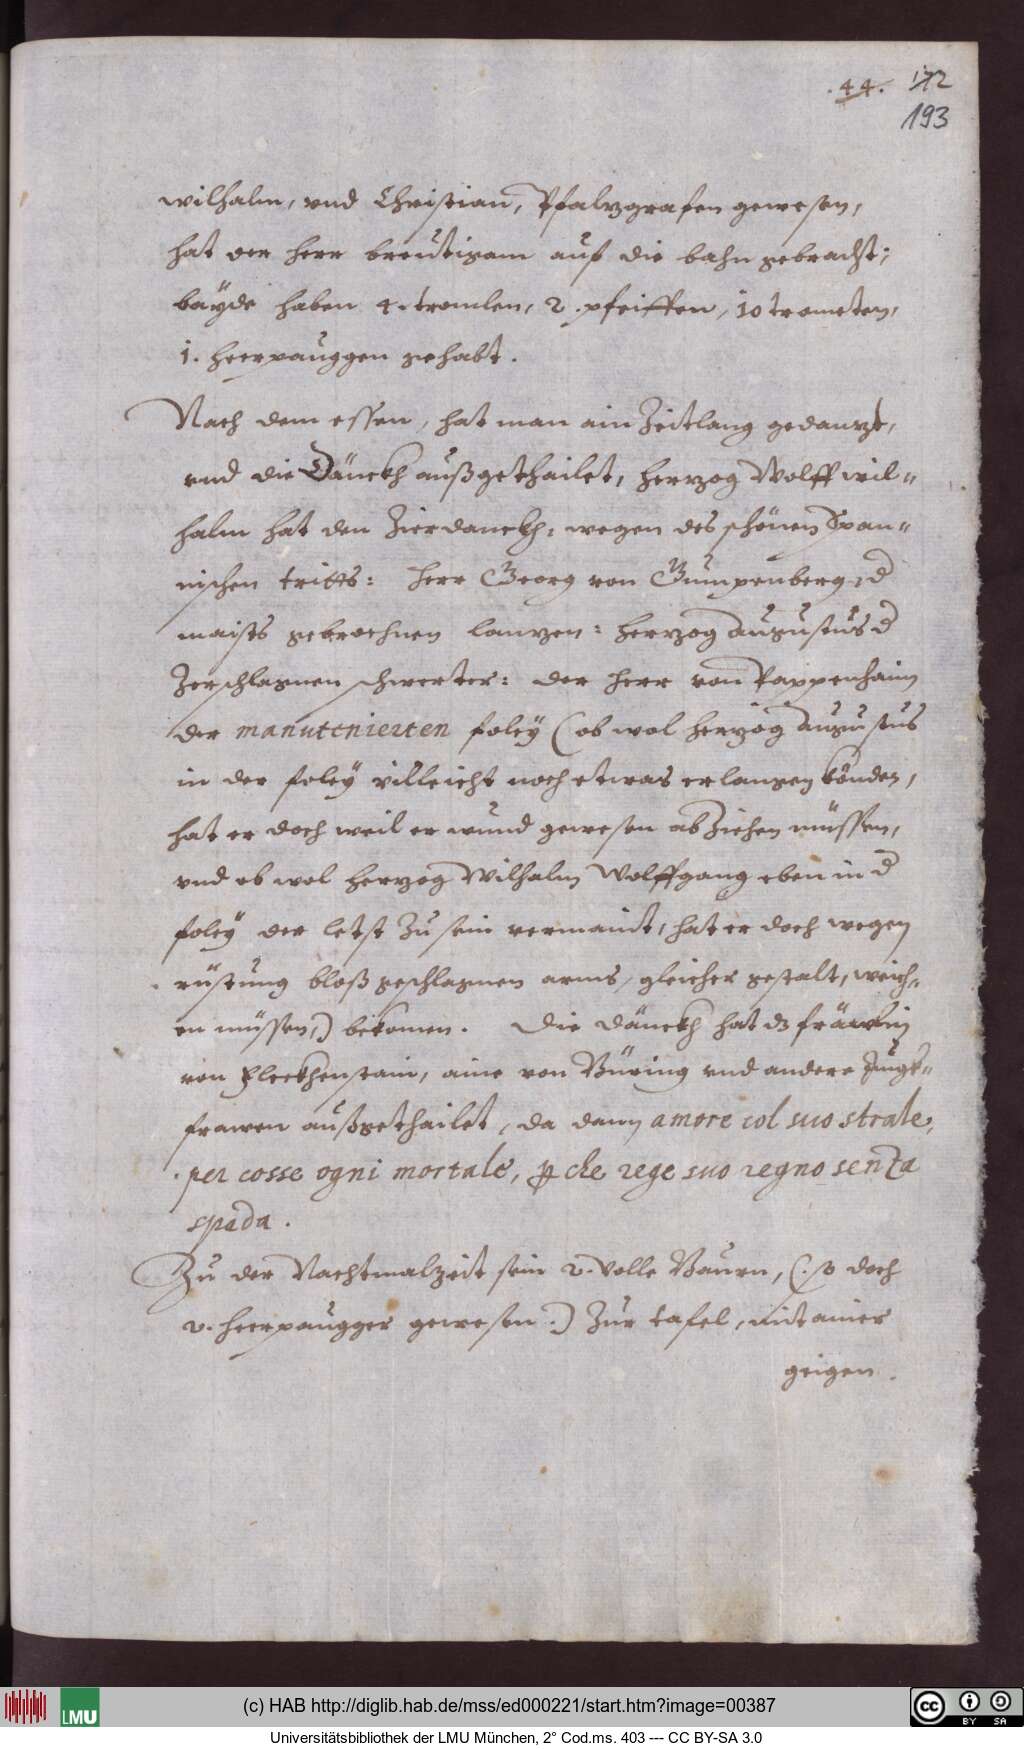 .44. 172
193
wilhalm, vnd Christian, Pfalzgrafen gewesen,
hat der herr breutigam auf die bahn gebracht;
bayde haben 4. tromlen, 2. pfeiffen, 10 trometen,
1. heerpauggen gehabt.
Nach dem essen, hat man ain Zeitlang gedanzt,
vnd die Dänckh außgethailet, herzog Wolff wil-
halm hat den Zierdanckh, wegen des schönen Span-
nischen tritts: herr Georg von Gumpenberg, d
maists gebrochnen lanzen: herzog Augustus d
Zerschlagnen schwerter: der herr von Pappenhaim
der manutenierten foley (ob wol herzog Augustus
in der foley villeicht noch etwas erlangen könden,
hat er doch weil er wund gewesen abziehen müssen,
vnd ob wol herzog Wilhalm Wolffgang eben in d
foley der letst zu sein vermaint, hat er doch wegen
rüstung bloß geschlagnen arms, gleicher gestalt, weich-
en müssen,) bekomen. Die dänckh hat dz fräwlin
von Fleckhenstain, aine von Büring vnd andere Jungk-
frawen außgethailet, da dann amore col suo strale,
per cosse ogni mortale, p che rege suo regno senza
spada.
Zu der Nachtmalzeit sein 2. volle Baurn, (. so doch
2. heerpaugger gewesen.) Zur tafel, mit ainer
geigen.
(c) HAB http://diglib.hab.de/mss/ed000221/start.htm?image=00387
LMU
cc BY SA
Universitätsbibliothek der LMU München, 2° Cod.ms. 403 --- CC BY-SA 3.0